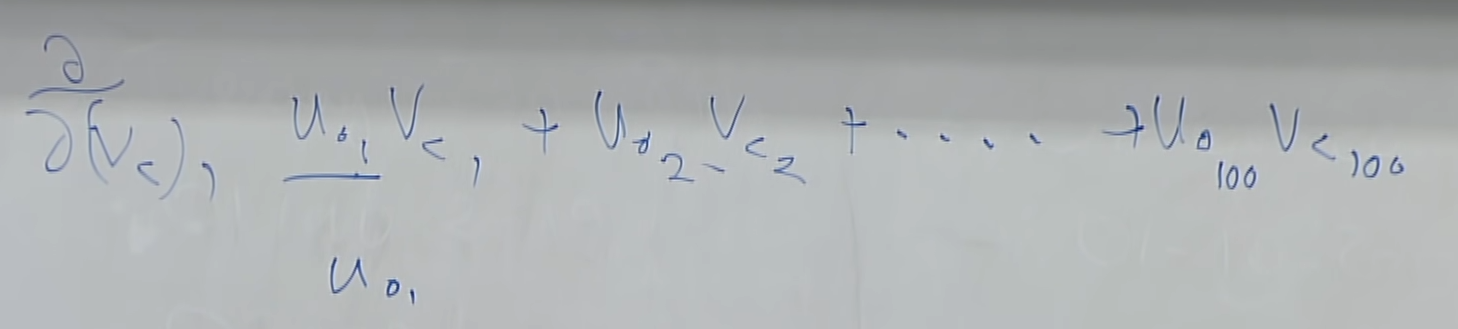 ∂/∂(v_c)_1 u_{o_1} v_{c_1} + u_{o_2} v_{c_2} + .... + u_{o_{100}} v_{c_{100}}
u_{o_1}